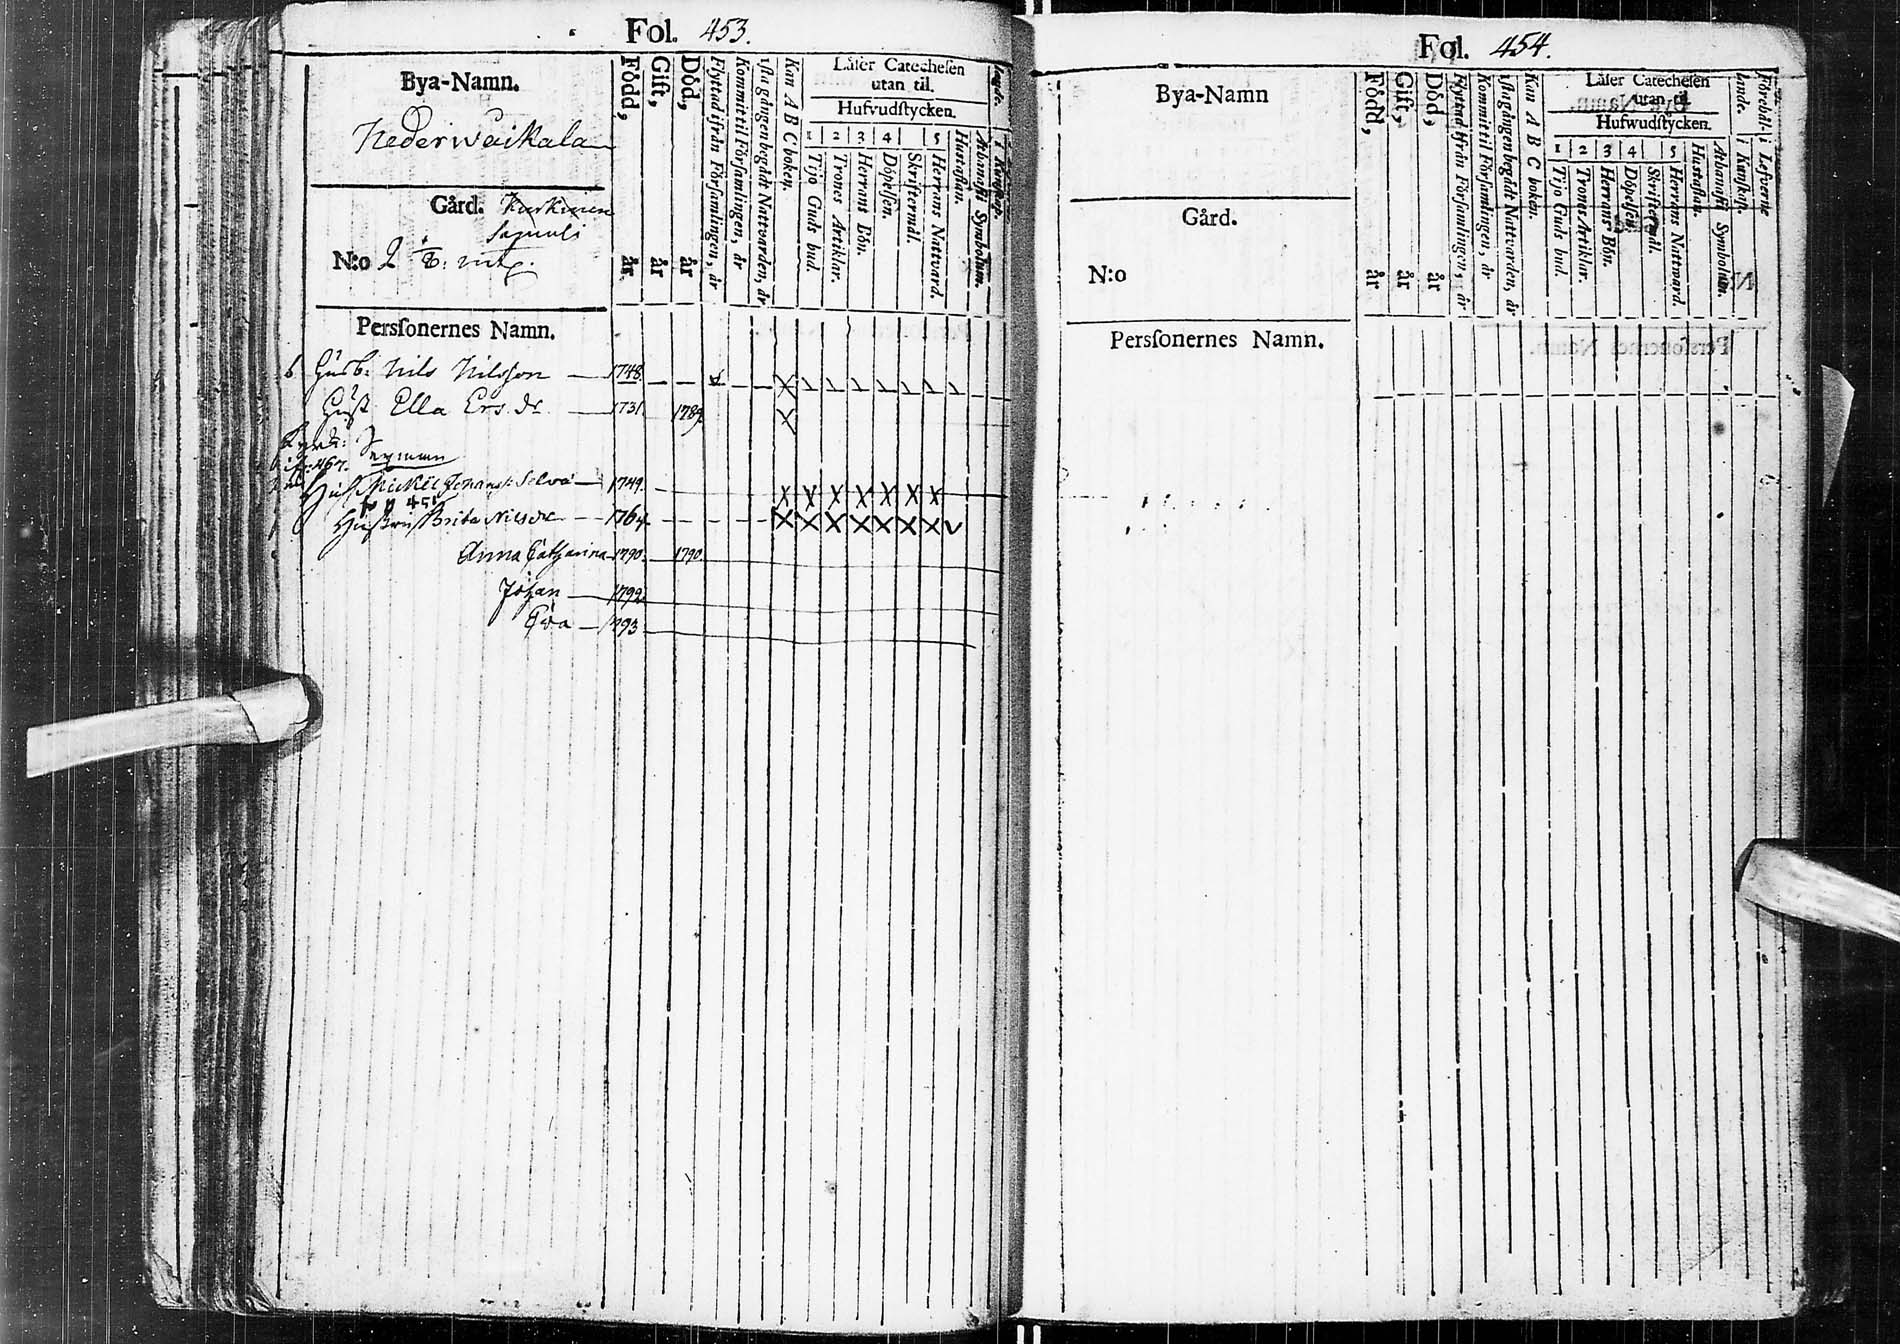 Fol. 453.
Bya-Namn.
Nederwaikala
Gård. Kurkinen
N:o 2
Född, år
Gift, år
Död, år
Flyttad ifrån Församlingen, år
Kommit til Församlingen, år
1sta gången begådt Nattvarden, år
Kan A B C boken.
Låser Catecheſen
utan til.
Hufvudſtycken.
1 2 3 4 5
Tijo Guds bud.
Trones Artiklar.
Herrans Bön.
Döpelſen.
Skriftermål.
Herrans Nattvard.
Huſtaflan.
Athanaſii Symbolum.
Perſonernes Namn.
Husb: Nils Nilsson 1748.
Hust. Ella Ers.dr 1731. 1789.
Mickel Johanss: Selvä 1749.
Hustru Brita Nilsdr 1764
Anna Catharina 1790. 1790.
Johan 1792.
Eva 1793
Fol. 454.
Bya-Namn
Gård.
N:o
Född, år
Gift, år
Död, år
Flyttad ifrån Församlingen, år
Kommit til Församlingen, år
1sta gången begådt Nattvarden, år
Kan A B C boken.
Låſer Catecheſen
utan til.
Hufwudſtycken.
1 2 3 4 5
Tijo Guds bud.
Trones Artiklar.
Herrans Bön.
Döpelſen.
Skriftermål.
Herrans Nattward.
Huſtaflan.
Athanaſii Symbolum.
i Kunſkap.
i Lefverne
Perſonernes Namn.